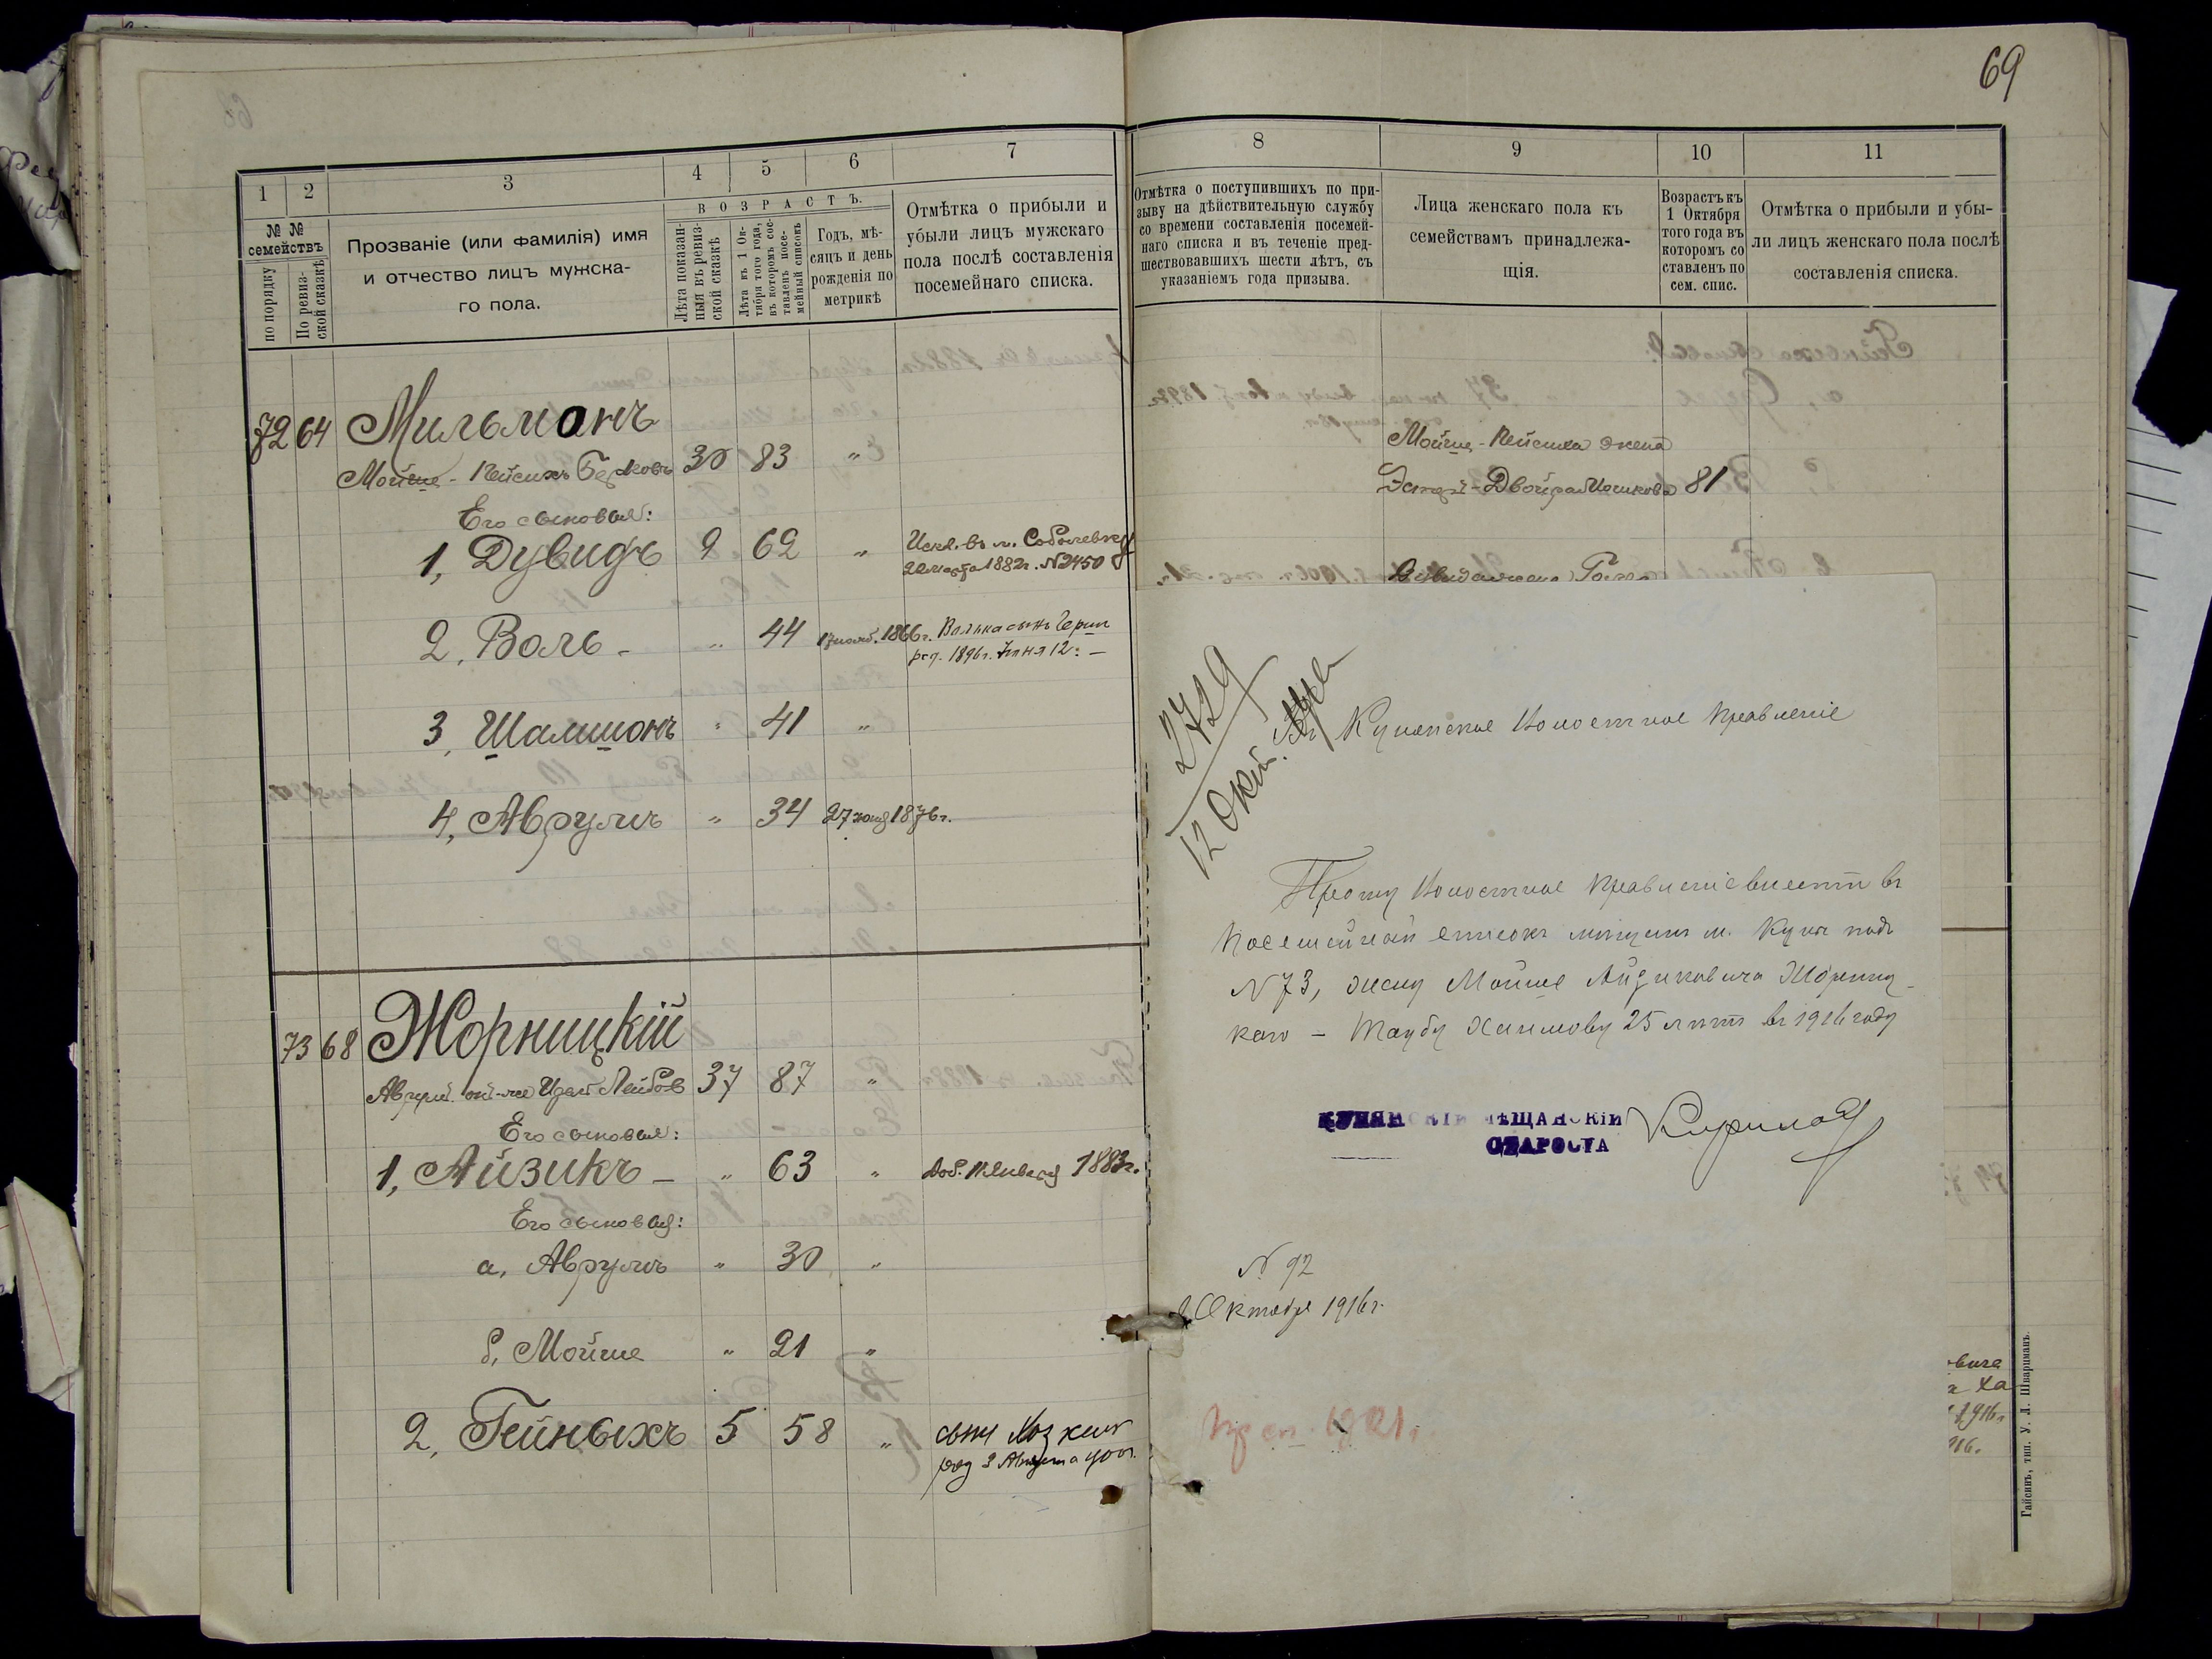 69
1
2
3
4
5
6
7
№ №
семействъ
по порядку
По ревиз-
ской сказкѣ
Прозваніе (или фамилія) имя
и отчество лицъ мужска-
го пола.
ВОЗРАСТЪ.
Лѣта показан-
ныя въ ревиз-
ской сказкѣ
Лѣта къ 1 Ок-
тября того года,
въ которомъ сос-
тавленъ посе-
мейный списокъ
Годъ, мѣ-
сяцъ и день
рожденія по
метрикѣ
Отмѣтка о прибыли и
убыли лицъ мужскаго
пола послѣ составленія
посемейнаго списка.
72 64 Мильманъ
Мойше-Пейсихъ Берковъ 30 83 "
Его сыновья:
1, Дувидъ 9 62 " Искл. въ м. Соболевку
1882г. №2450
2, Воль - " 44 1866г. Волька сынъ Герш
род. 1896г. Іюня 12: -
3, Шамшонъ " 41 "
4, Аврумъ " 34 27 1876г.
73 68 Жорницкій
Лейбов 37 87 "
Его сыновья:
1, Айзикъ - " 63 " Доб. Января 1883г.
Его сыновья:
а, Аврумъ " 30 "
б, Мойше " 21 "
2, Гейныхъ 5 58 " сынъ
род 3 Августа 900г.
8
9
10
11
Отмѣтка о поступившихъ по при-
зыву на дѣйствительную службу
со времени составленія посемей-
наго списка и въ теченіе пред-
шествовавшихъ шести лѣтъ, съ
указаніемъ года призыва.
Лица женскаго пола къ
семействамъ принадлежа-
щія.
Возрастъ къ
1 Октября
того года въ
которомъ со
ставленъ по
сем. спис.
Отмѣтка о прибыли и убы-
ли лицъ женскаго пола послѣ
составленія списка.
Мойше-Пейсиха жена
Эстер-Двойра 81
Дувида жена
2729
12 Окт. 916
Въ Кунянское Волостное Правленіе
Прошу Волостное Правленіе внести въ
посемейный списокъ мѣщанъ м. Куны подъ
N 73, жену Мойше Айзиковича Жорниц-
каго - Таубу Хаимову 25 лѣтъ въ 1916 году
КУНЯНСКІЙ МѢЩАНСКІЙ
СТАРОСТА
N 92
Октября 1916г.
вича
Ха
1916г
916.
Гайсинъ, тип. У. Л. Шварцманъ.